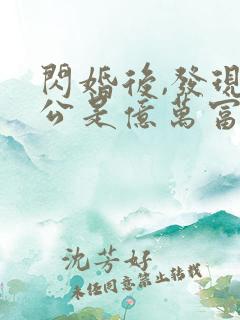 閃婚後,發現
公是億萬富
沈芳好
未經同意禁止轉載